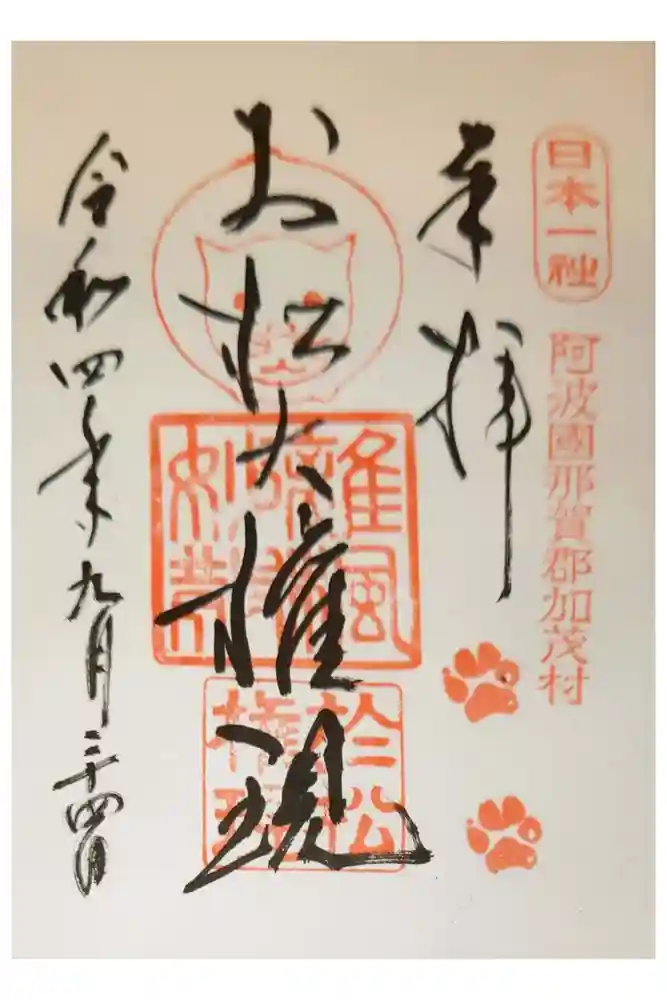 日本一社
阿波國那賀郡加茂村
奉拝
お松大権現
於松
権現
令和四年九月二十四日